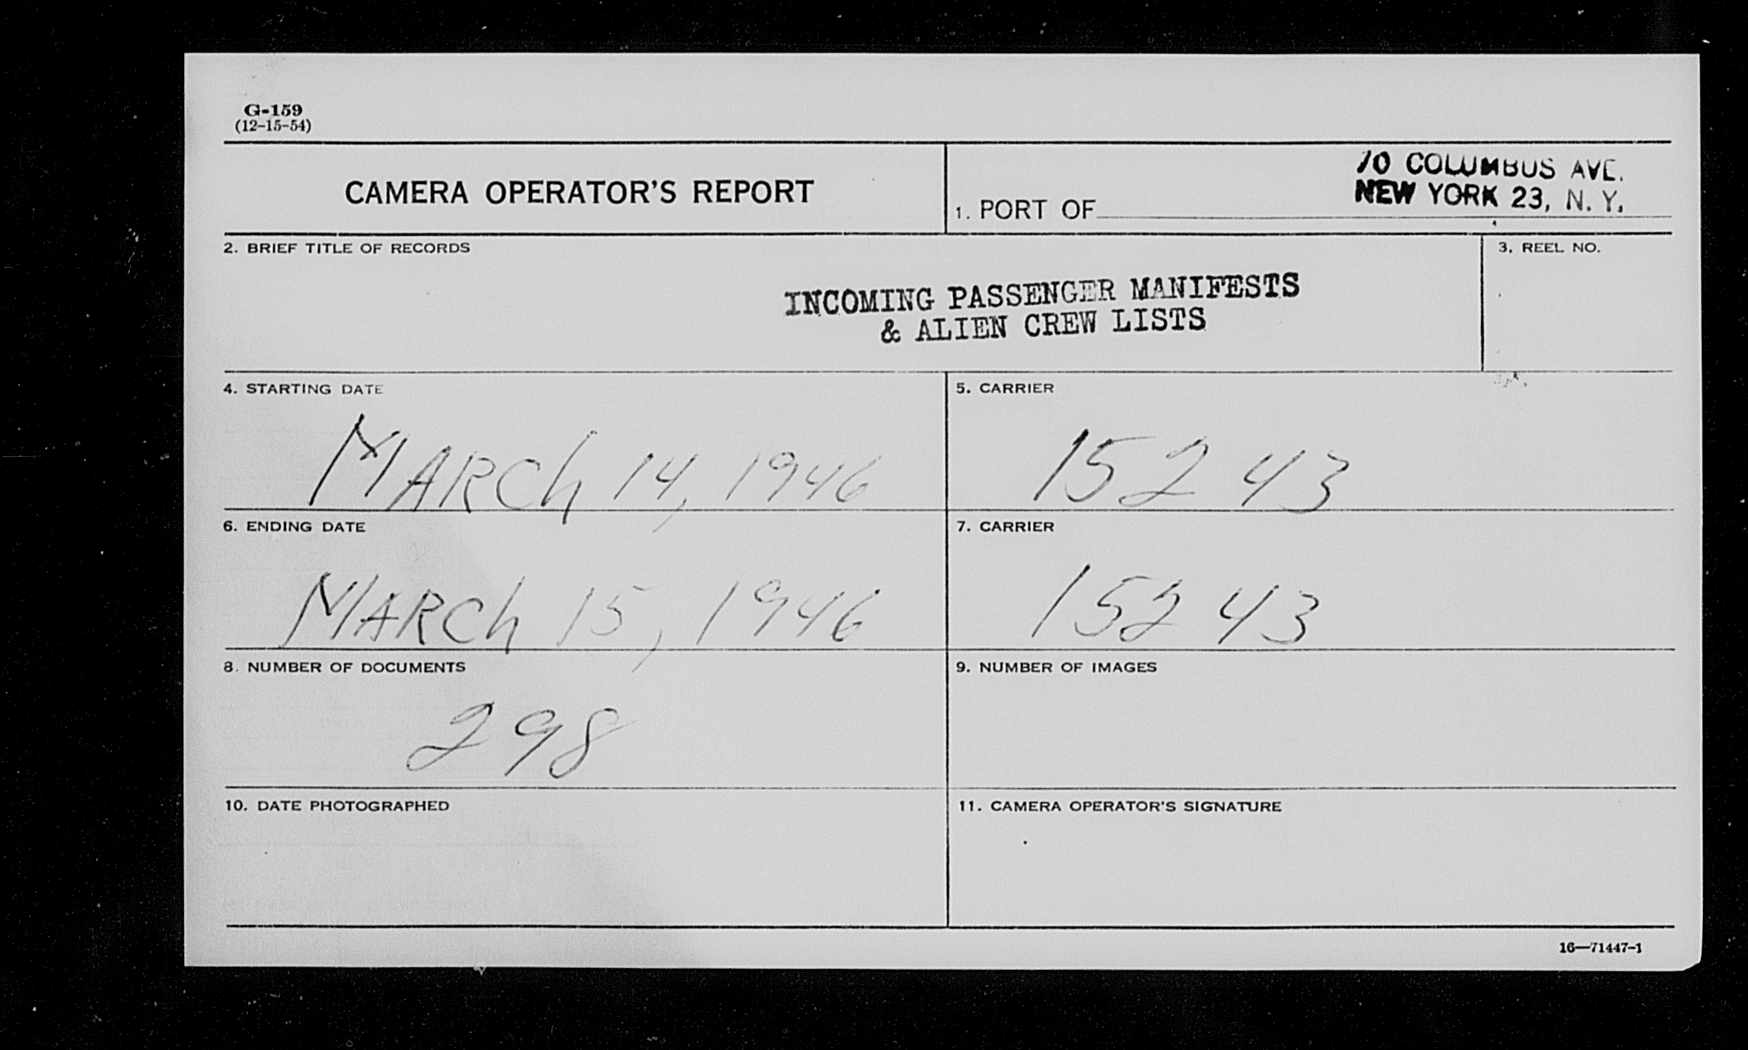 G-159
(12-15-54)
CAMERA OPERATOR'S REPORT
1. PORT OF
70 COLUMBUS AVE.
NEW YORK 23, N. Y.
2. BRIEF TITLE OF RECORDS
INCOMING PASSENGER MANIFESTS
& ALIEN CREW LISTS
3. REEL NO.
4. STARTING DATE
MARCh 14, 1946
5. CARRIER
15243
6. ENDING DATE
MARCh 15, 1946
7. CARRIER
15243
8. NUMBER OF DOCUMENTS
298
9. NUMBER OF IMAGES
10. DATE PHOTOGRAPHED
11. CAMERA OPERATOR'S SIGNATURE
16—71447-1